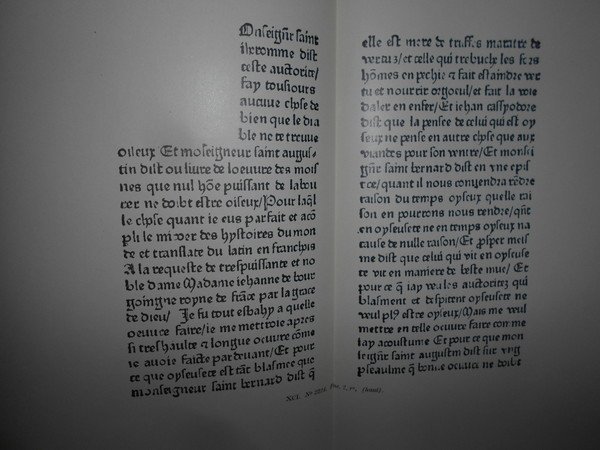 Onseignr saint
iherome dist
ceste auctorite/
fay tousiours
aucune chose de
bien que le dia
ble ne te treuue
oiseux Et monseigneur saint augus-
tin dist ou liure de loeuure des moi
nes que nul hõe puissant de labou
rer ne doibt estre oiseux/Pour laql
le chose quant ie eus parfait et acõ
pli le miroer des hystoires du mon
de et translate du latin en franchois
A la requeste de trespuissante et no
ble dame Madame iehanne de bour
goingne royne de frãce par la grace
de dieu/ Je fu tout esbahy a quelle
oeuure faire/ie me mettroie apres
si treshaulte & longue oeuure cõme
ie auoie faicte par deuant/Et pour
ce que oyseusete est tãt blasmee que
monseigneur saint bernard dist q̃
elle est mere de truffes maratre de
vertuz/et celle qui trebuche les fors
hõmes en pechie & fait estaindre ver
tu et nourrir orgoeul/et fait la voie
daler en enfer/Et iehan cassyodore
dist que la pensee de celui qui est oy
seux ne pense en autre chose que aux
viandes pour son ventre/Et monsei
gñr saint bernard dist en vne epis
tre/quant il nous conuendra rẽdre
raison du temps oyseux quelle rai
son en pourrons nous rendre/qñt
en oyseusete ne en temps oyseux na
cause de nulle raison/Et psper mei
me dist que celui qui vit en oyseuse
te vit en maniere de beste mue/Et
pour ce q̃ iay veu les auctoritez qui
blasment et despitent oyseusete ne
veul plꝰ estre oyseux/Mais me vuel
mettre en telle oeuure faire comme
iay acoustume Et pour ce que mon
seignr saint augustin dist sur vng
pseaulme q̃ bonne oeuure ne doibt
XCI. Nº 2221. Fol. 2, ro.